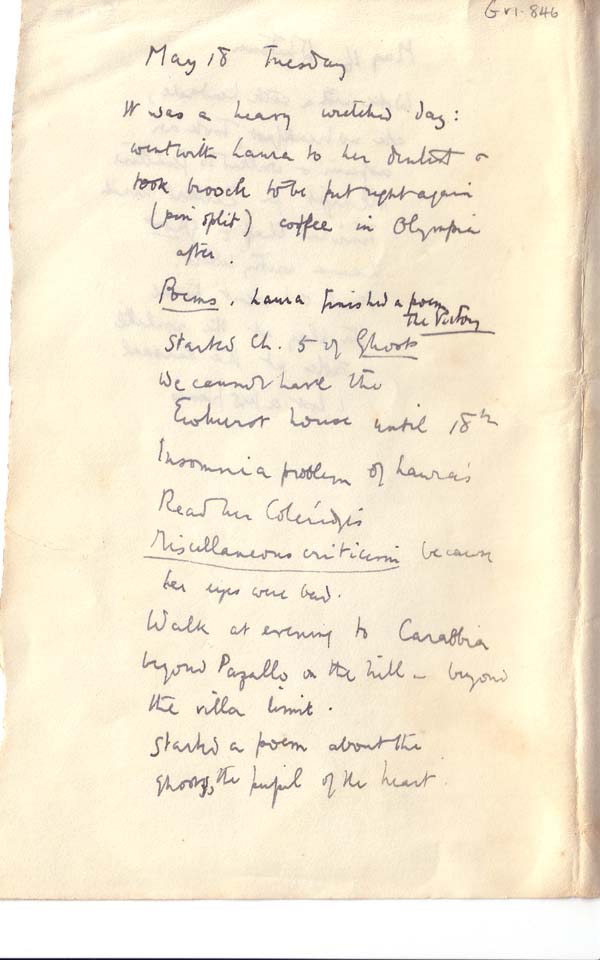 GV1-846
May 18 Tuesday
It was a heavy wretched day:
went with Laura to her dentist &
took brooch to be put right again
(pin split) coffee in Olympia
after.
Poems. Laura finished a poem
The Victory
Started Ch. 5 of Ghosts
We cannot have the
Ewhurst house until 18th
Insomnia problem of Laura's
Read her Coleridge's
Miscellaneous criticism because
her eyes were bad.
Walk at evening to Carabbia
beyond Pazallo on the hill – beyond
the villa limit.
Started a poem about the
ghosts, the pupil of the heart.